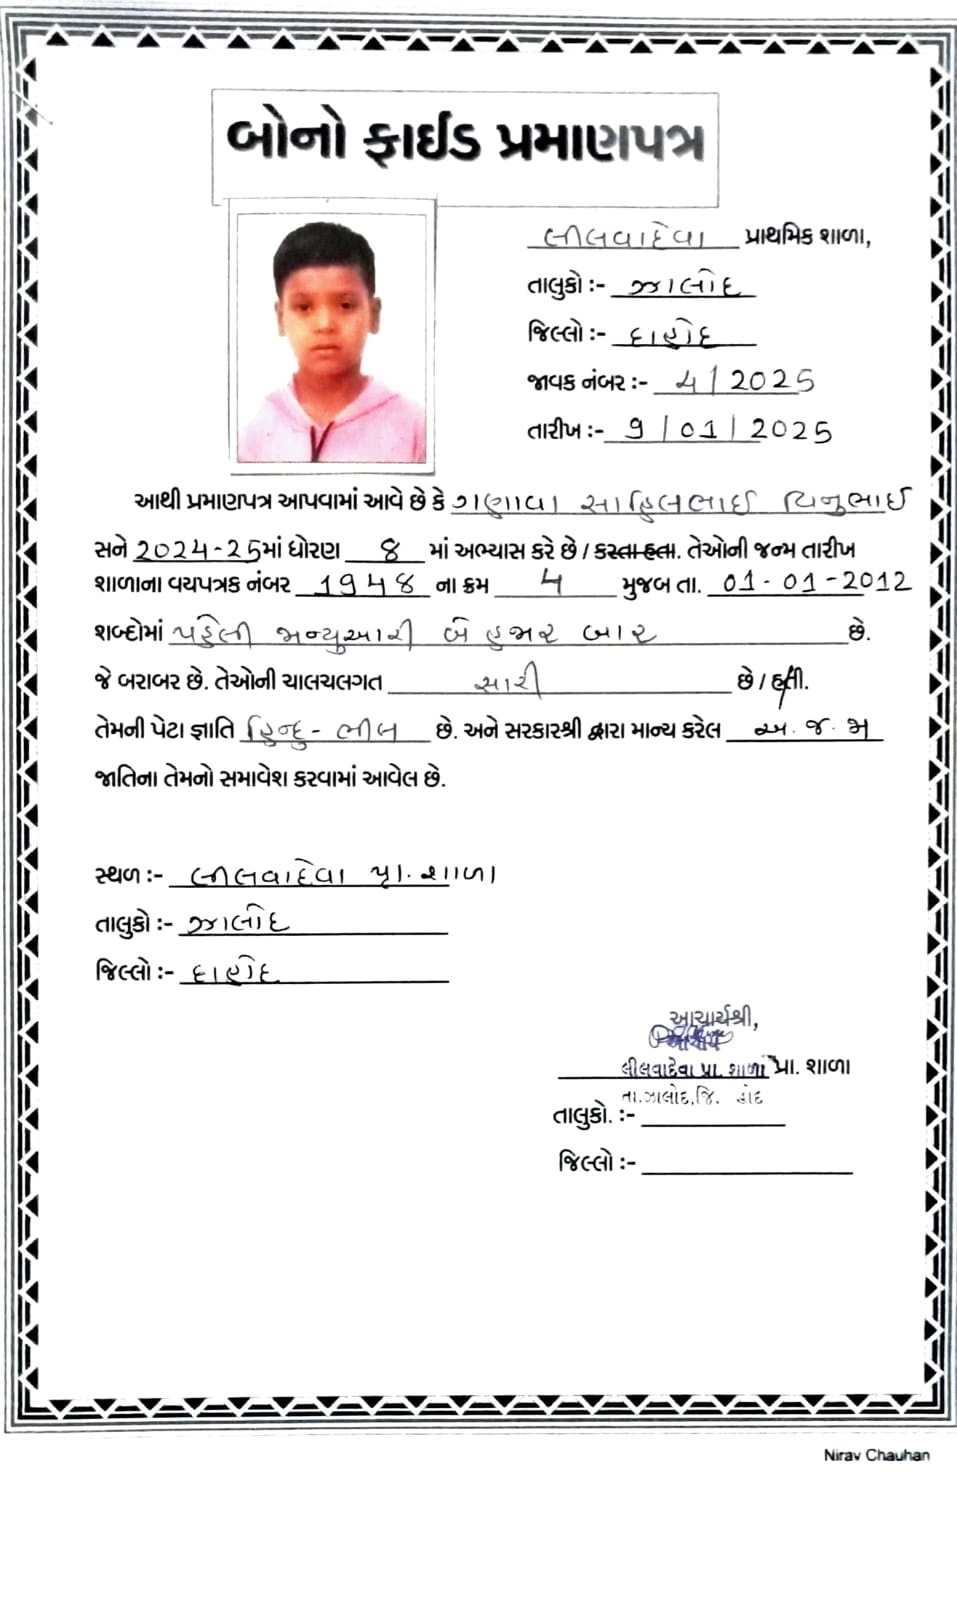 બોનો ફાઈડ પ્રમાણપત્ર
લીલવાદેવા પ્રાથમિક શાળા,
તાલુકો :- ઝાલોદ
જિલ્લો :- દાહોદ
જાવક નંબર :- 4/2025
તારીખ :- 9/01/2025
આથી પ્રમાણપત્ર આપવામાં આવે છે કે ગણાવા સાહિલભાઈ વિનુભાઈ
સને 2024-25માં ધોરણ 8 માં અભ્યાસ કરે છે / કરતા હતા. તેઓની જન્મ તારીખ
શાળાના વયપત્રક નંબર 1948 ના ક્રમ 4 મુજબ તા. 01-01-2012
શબ્દોમાં પહેલી જાન્યુઆરી બે હજાર બાર છે.
જે બરાબર છે. તેઓની ચાલચલગત સારી છે / હતી.
તેમની પેટા જ્ઞાતિ હિન્દુ - ભીલ છે. અને સરકારશ્રી દ્વારા માન્ય કરેલ અ.જ.જા
જાતિના તેમનો સમાવેશ કરવામાં આવેલ છે.
સ્થળ :- લીલવાદેવા પ્રા. શાળા
તાલુકો :- ઝાલોદ
જિલ્લો :- દાહોદ
આચાર્યશ્રી,
આચાર્ય
લીલવાદેવા પ્રા. શાળા પ્રા. શાળા
તા.ઝાલોદ,જિ. હોદ
તાલુકો. :-
જિલ્લો :-
Nirav Chauhan